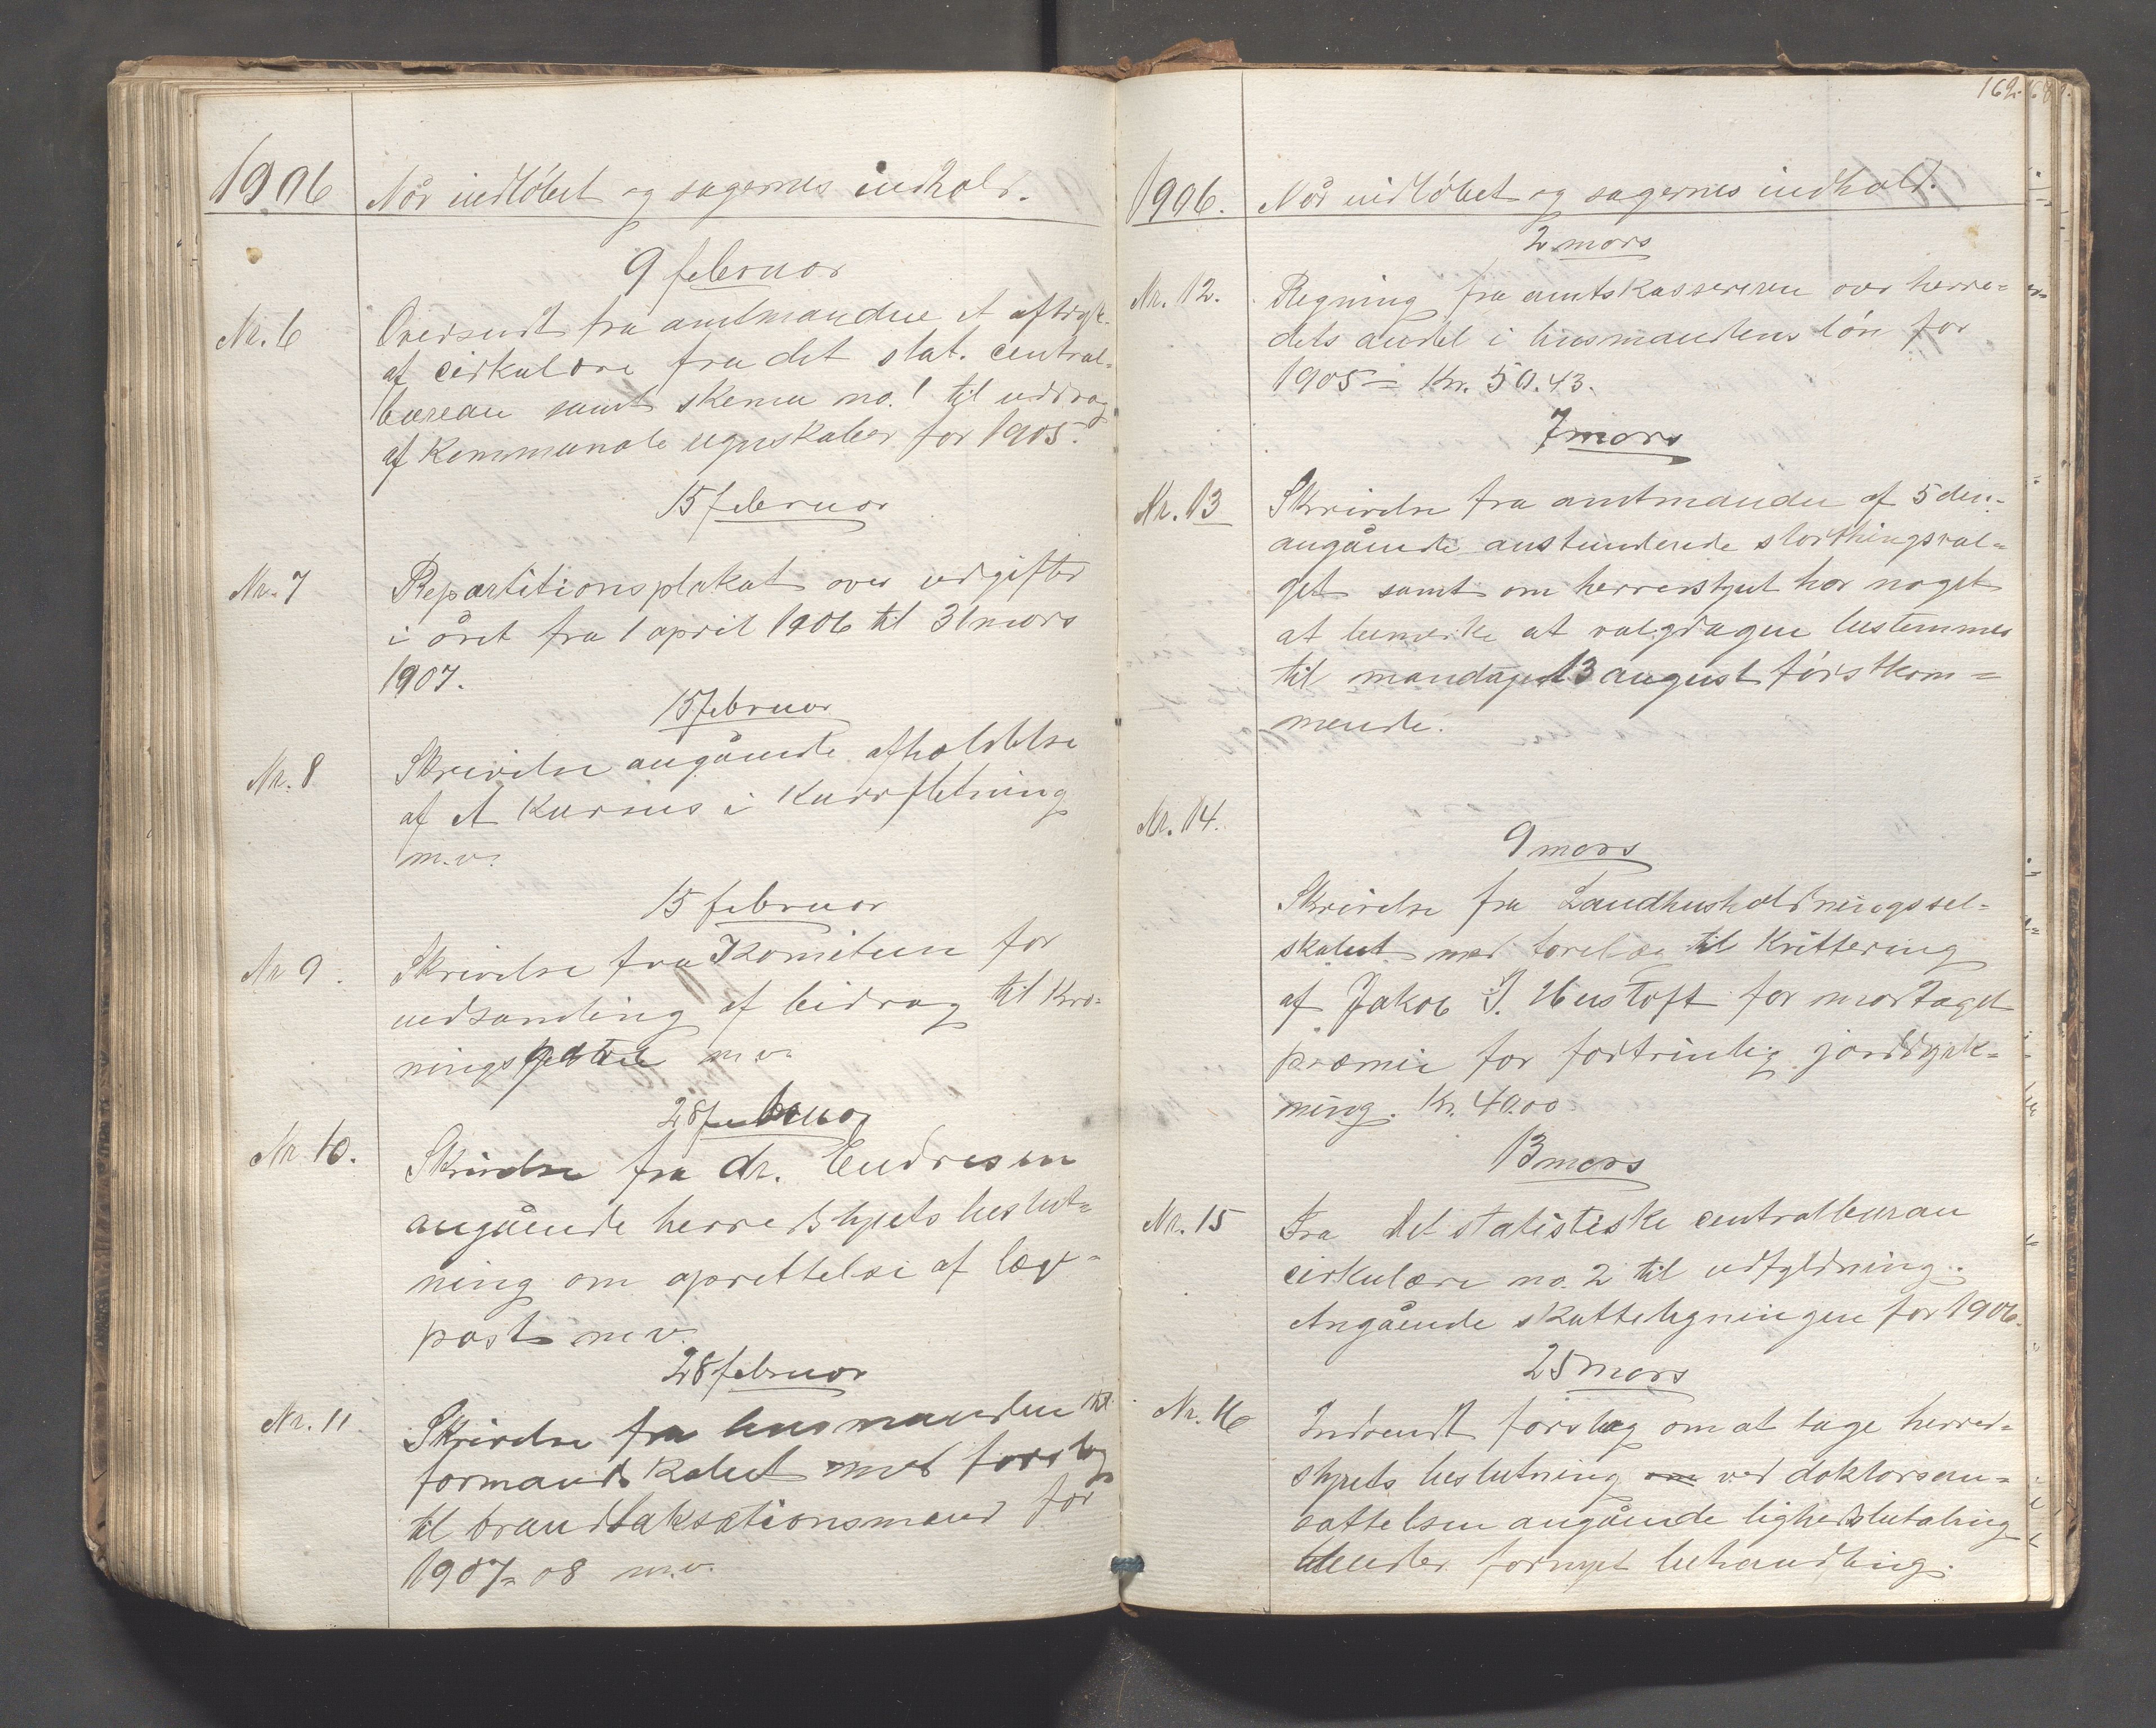 1906
Når indløbet og sagernes indhold.
9 februar
Nr. 6
Oversendt fra amtmanden et aftryk
af cirkulære fra det stat. central-
bureau samt skema no. 1 til uddrag
af kommunale regnskaber for 1905.
15 februar
Nr. 7
Repartitionsplakat over udgifter
i året fra 1 april 1906 til 31 mars
1907.
15 februar
Nr. 8
Skrivelse angående afholdelse
af et kursus i kurvfletning
m.v.
15 februar
Nr 9.
Skrivelse fra Komiteen for
indsamling af bidrag til kro-
ningsgave m.v.
28 februar
Nr 10.
Skrivelse fra dr. Endresen
angående herredstyrets beslut-
ning om oprettelse af læge-
post m.v.
28 februar
Nr. 11
Skrivelse fra lensmanden til
formandskabet med forslag
til brandtaksationsmænd for
1907-08 m.v.
162.
1906.
Når indløbet og sagernes indhold.
2 mars
Nr. 12.
Regning fra amtskassereren over herre-
dets andel i lensmandens løn for
1905 = Kr. 50.43.
7 mars
Nr. 13
Skrivelse fra amtmanden af 5 den-
angående anstundende storthingsval-
get samt om herredstyret har noget
at bemerke at valgdagen bestemmes
til mandagen 13 august førstkom-
mende.
Nr. 14.
9 mars
Skrivelse fra Landhusholdningssel-
skabet med forelæg til kvittering
af Jakob S. Hustoft for modtaget
præmie for fortrinlig jorddyrk-
ning. Kr. 40.00
13 mars
Nr. 15
Fra det statistiske centralbureau
cirkulære no. 2 til udfyldning.
Angående skatteligningen for 1906.
25 mars
Nr. 16
Indsendt forslag om at tage herred-
styrets beslutning om ved doktorsan-
sættelsen angående lighedsbetaling
under fornyet behandling.